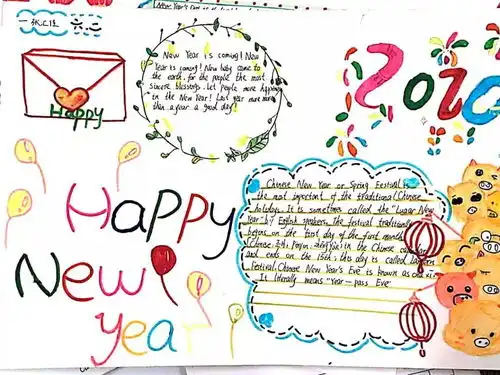 Happy
New Year is coming! New
Year is coming! New baby come to
the earth, for the people the most
sincere blessings. Let people more happiness
in the New Year! Last year more more
than a year a good day!
Happy
New
year
Chinese New Year or Spring Festival is
the most important of the traditional Chinese
holidays. It is sometimes called the "Lunar New
Year" by English speakers, the festival traditionally
begins on the first day of the first month
Chinese: pinyin: in the Chinese
and ends on the 15th; this day is called
Festival. Chinese New Year's Eve is known as
It literally means "Year-pass Eve"